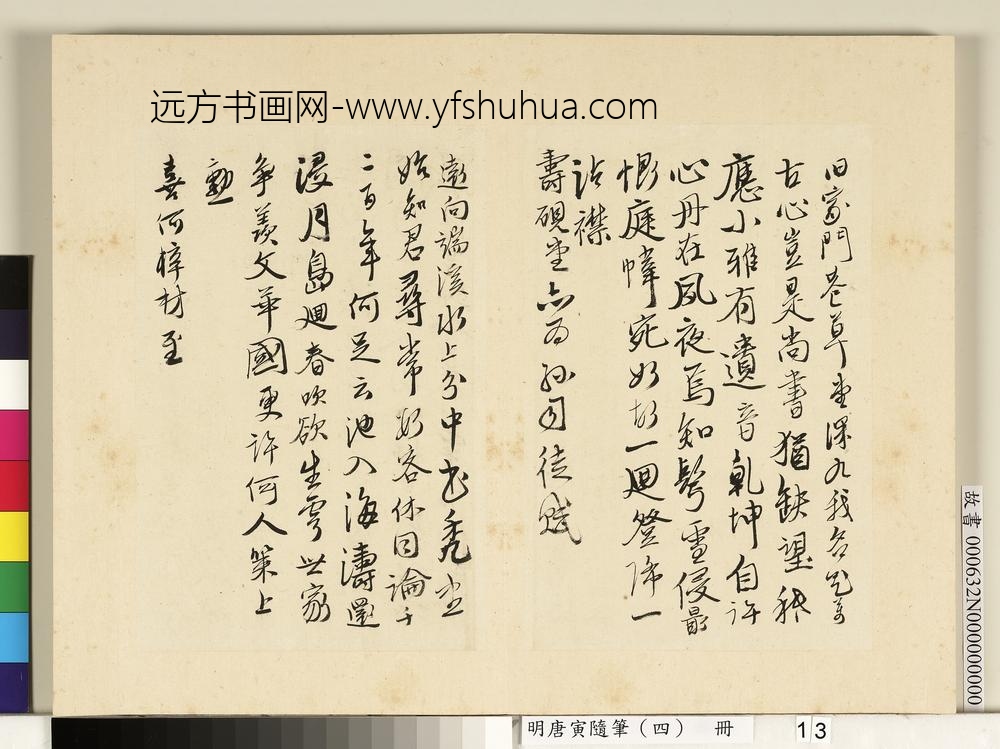 远方书画网-www.yfshuhua.com
旧家門巷草堂深九我台
古心豈是尚書猶缺望秪
應小雅有遺音乾坤自許
心丹在夙夜焉知鬢雪侵最
恨庭幃宛如故一迴登降一
沾襟
壽硯堂
亦為孫司徒賦
向端溪水上分中書禿盡
始知君尋常好客休同論千
二百年何足云池入海濤還
浸月島迴春吹欲生雲世家
爭羨文華國更許何人策上
勳
喜何梓材至
故書 000632N000000000
明唐寅隨筆(四) 冊
13